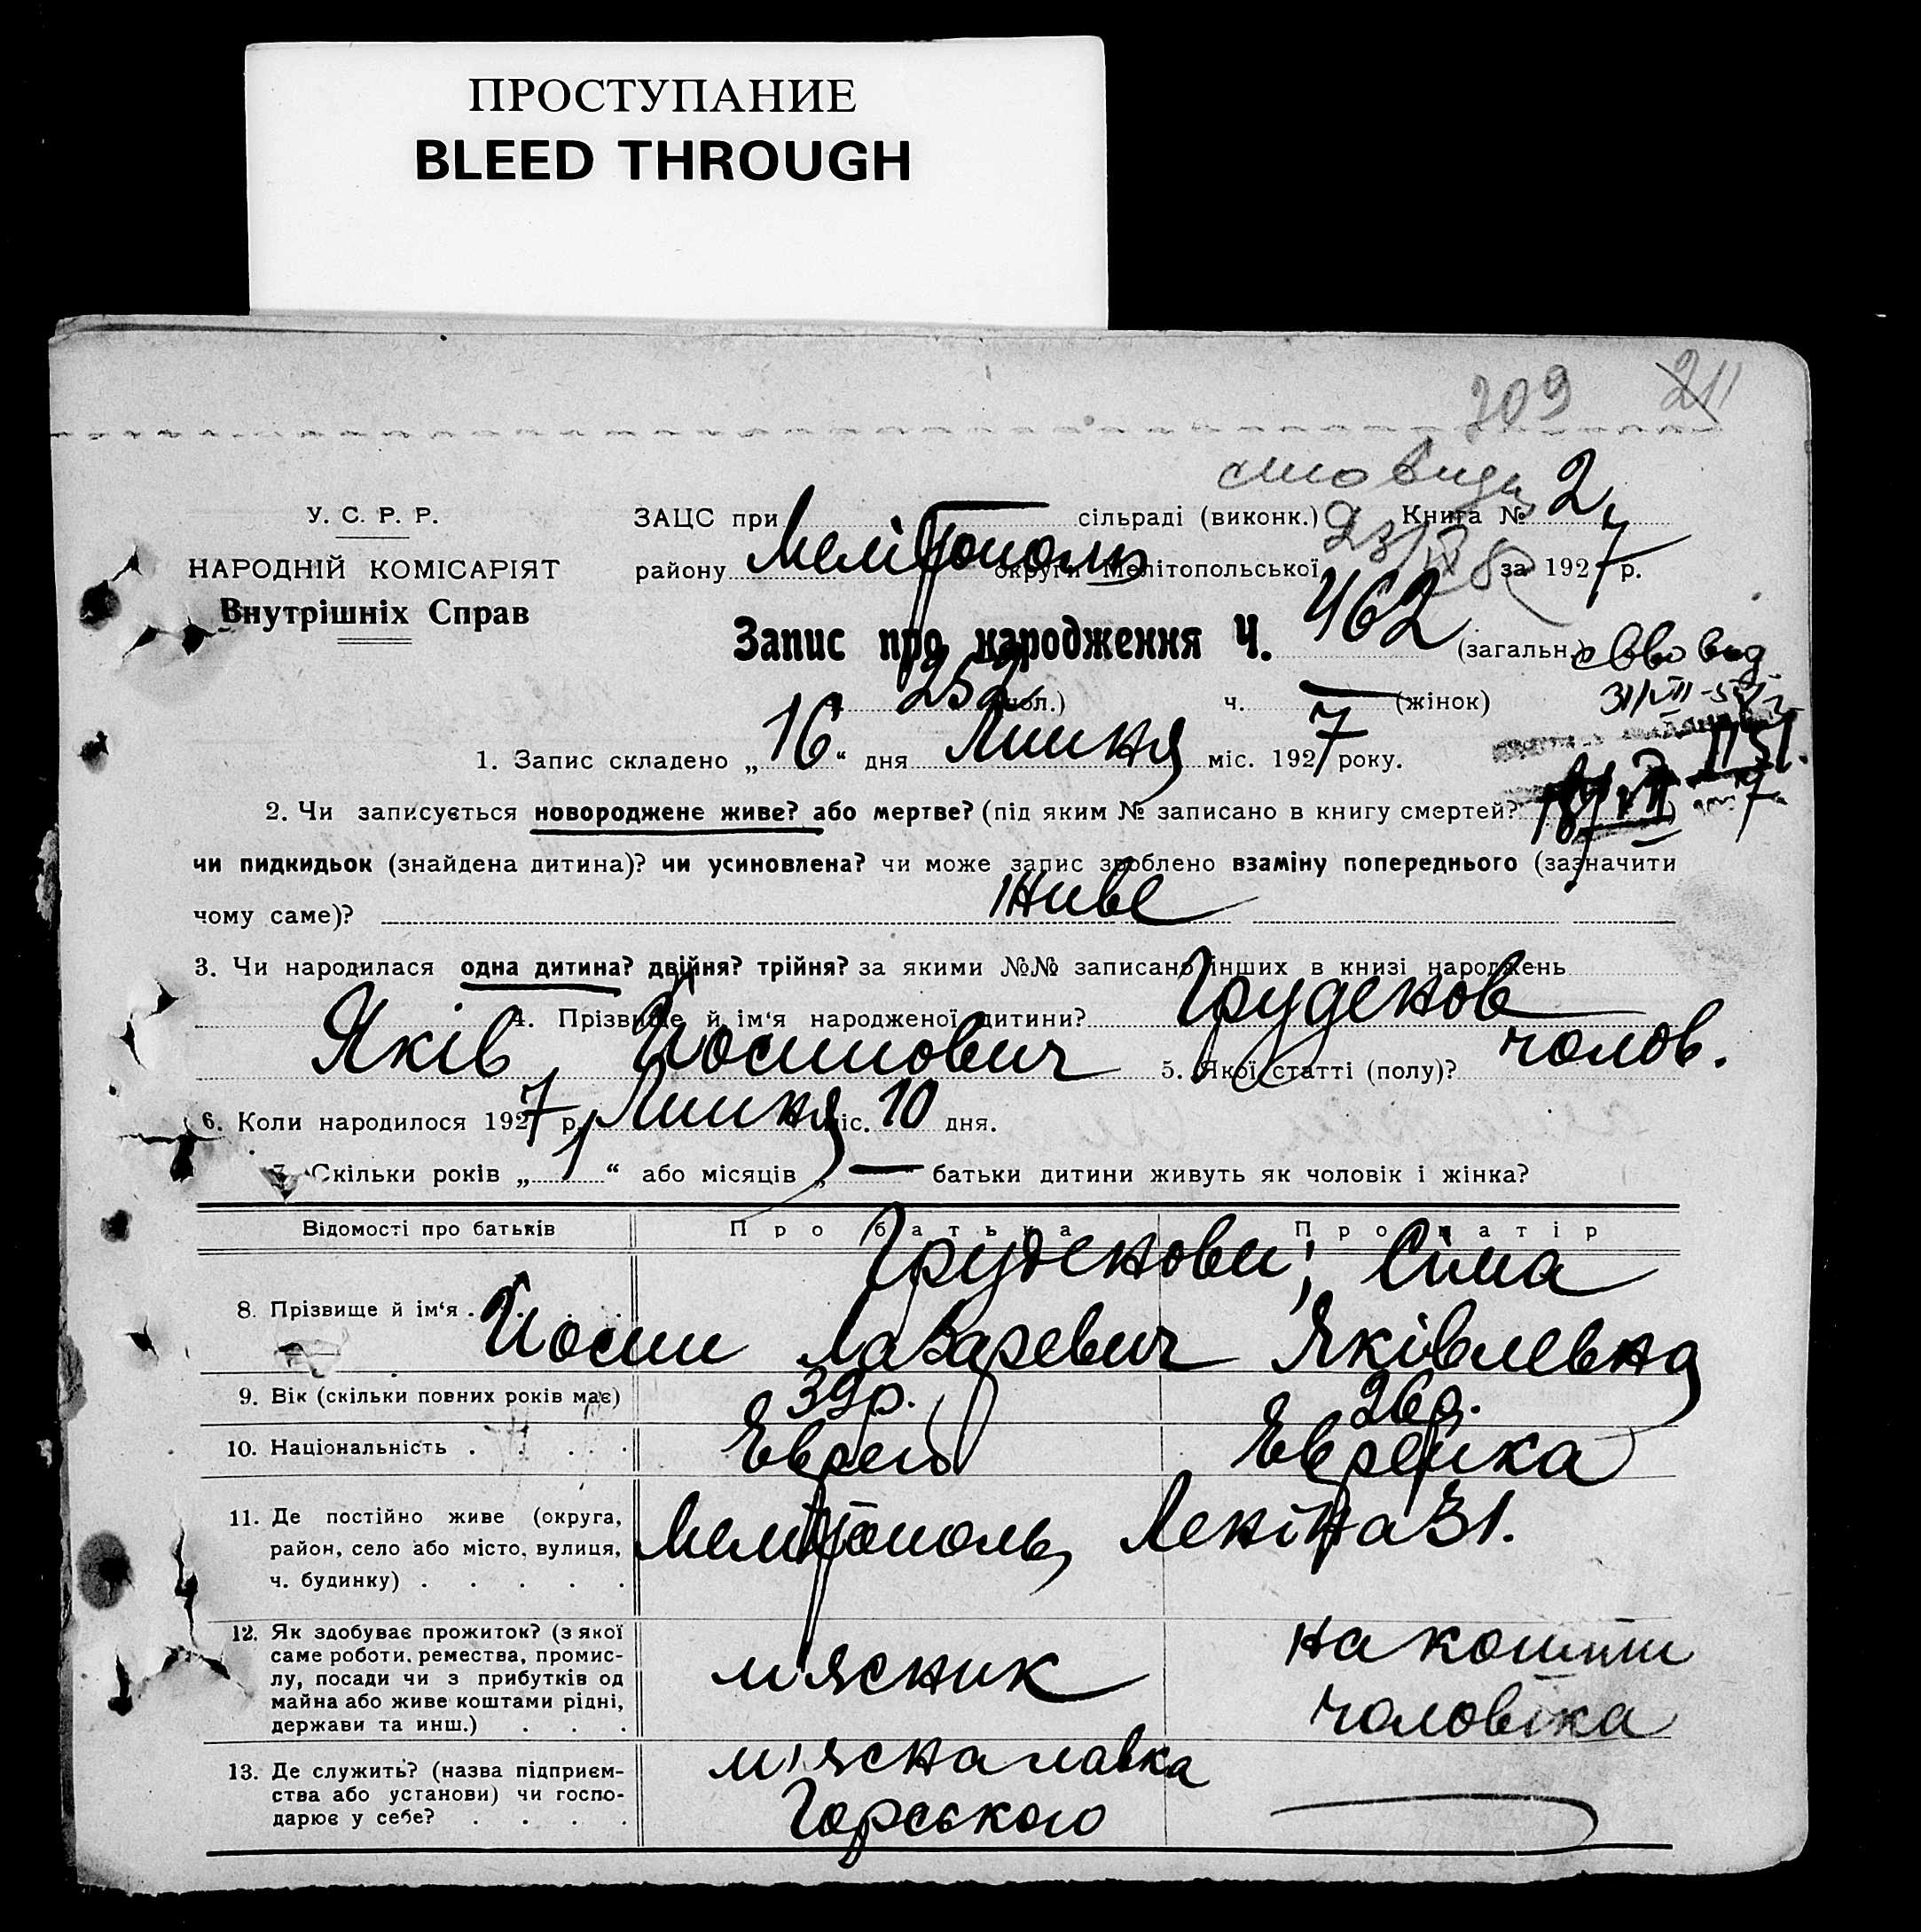 ПРОСТУПАНИЕ
BLEED THROUGH
209 211
У. С. Р. Р.
НАРОДНІЙ КОМІСАРІЯТ
Внутрішніх Справ
ЗАЦС при сільраді (виконк.) Книга № 2
району Мелітополь округи Мелітопольської за 1927 р.
Запис про народження Ч. 462 (загальн.)
252 (чол.) ч. — (жінок)
1. Запис складено „16“ дня Липня міс. 1927 року.
2. Чи записується новороджене живе? або мертве? (під яким № записано в книгу смертей?
чи пидкидьок (знайдена дитина)? чи усиновлена? чи може запис зроблено взаміну попереднього (зазначити
чому саме)? Живе
3. Чи народилася одна дитина? двійня? трійня? за якими №№ записано інших в книзі народжень
4. Прізвище й ім‘я народженої дитини? Груденов
Яків Йосипович 5. Якої статті (полу)? чолов.
6. Коли народилося 1927 р. Липня міс. 10 дня.
7. Скільки років „1“ або місяців „—“ батьки дитини живуть як чоловік і жінка?
Відомості про батьків Про батька Про матір
8. Прізвище й ім‘я . Груденови; Сіма
Йосип Лазаревич Яківлевна
9. Вік (скільки повних років має) 39р. 26р.
10. Національність . . . . Еврей Еврейка
11. Де постійно живе (округа,
район, село або місто, вулиця, Мелітополь, Леніна 31.
ч. будинку) . . . . .
12. Як здобуває прожиток? (з якої
саме роботи, ремества, промис-
лу, посади чи з прибутків од
майна або живе коштами рідні,
держави та инш.) . . .
м'ясник на кошти
чоловіка
13. Де служить? (назва підприєм-
ства або установи) чи госпо-
дарює у себе? . . . .
м'ясна лавка
Горського